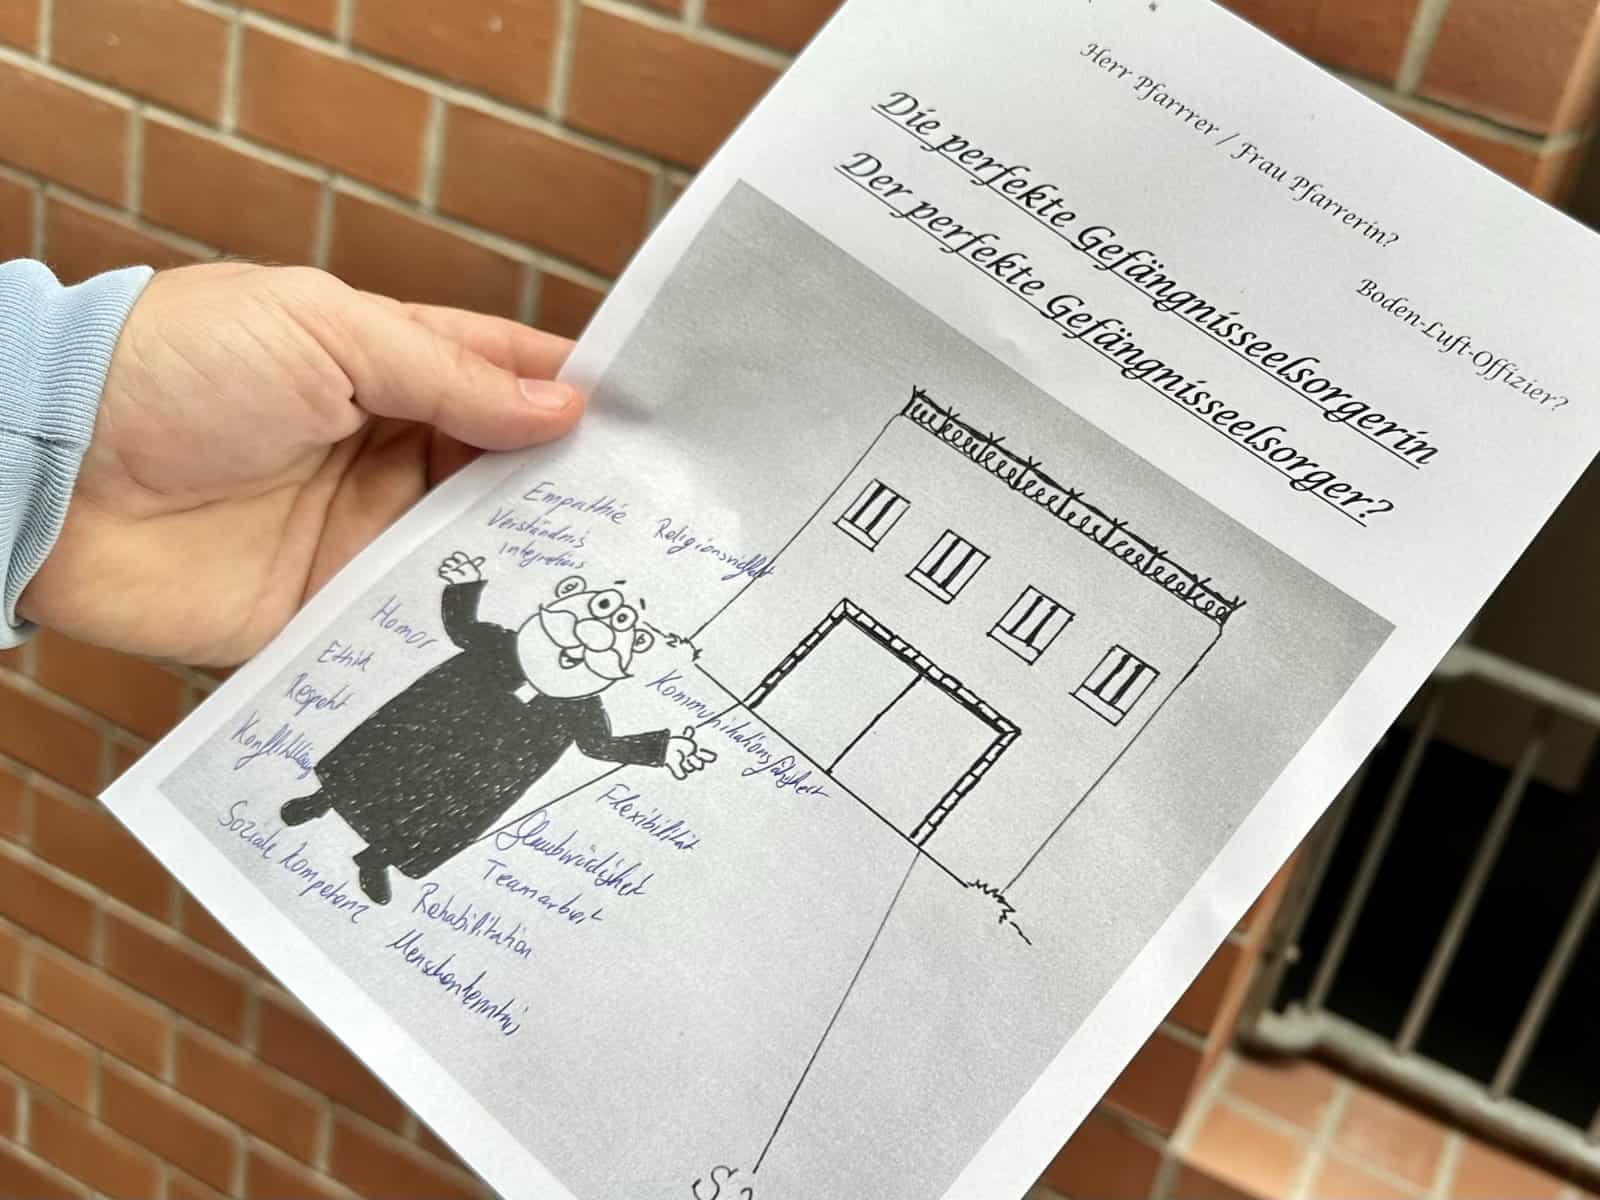 Herr Pfarrrer / Frau Pfarrerin?
Boden-Luft-Offizier?
Die perfekte Gefängnisseelsorgerin
Der perfekte Gefängnisseelsorger?
Empathie
Verständnis
Religionsvielfalt
Homor
Ethik
Respekt
Kommunikationsfähigkeit
Flexibilität
Glaubwürdigkeit
Teamarbeit
Soziale Kompetenz
Rehabilitation
Menschenkenntnis